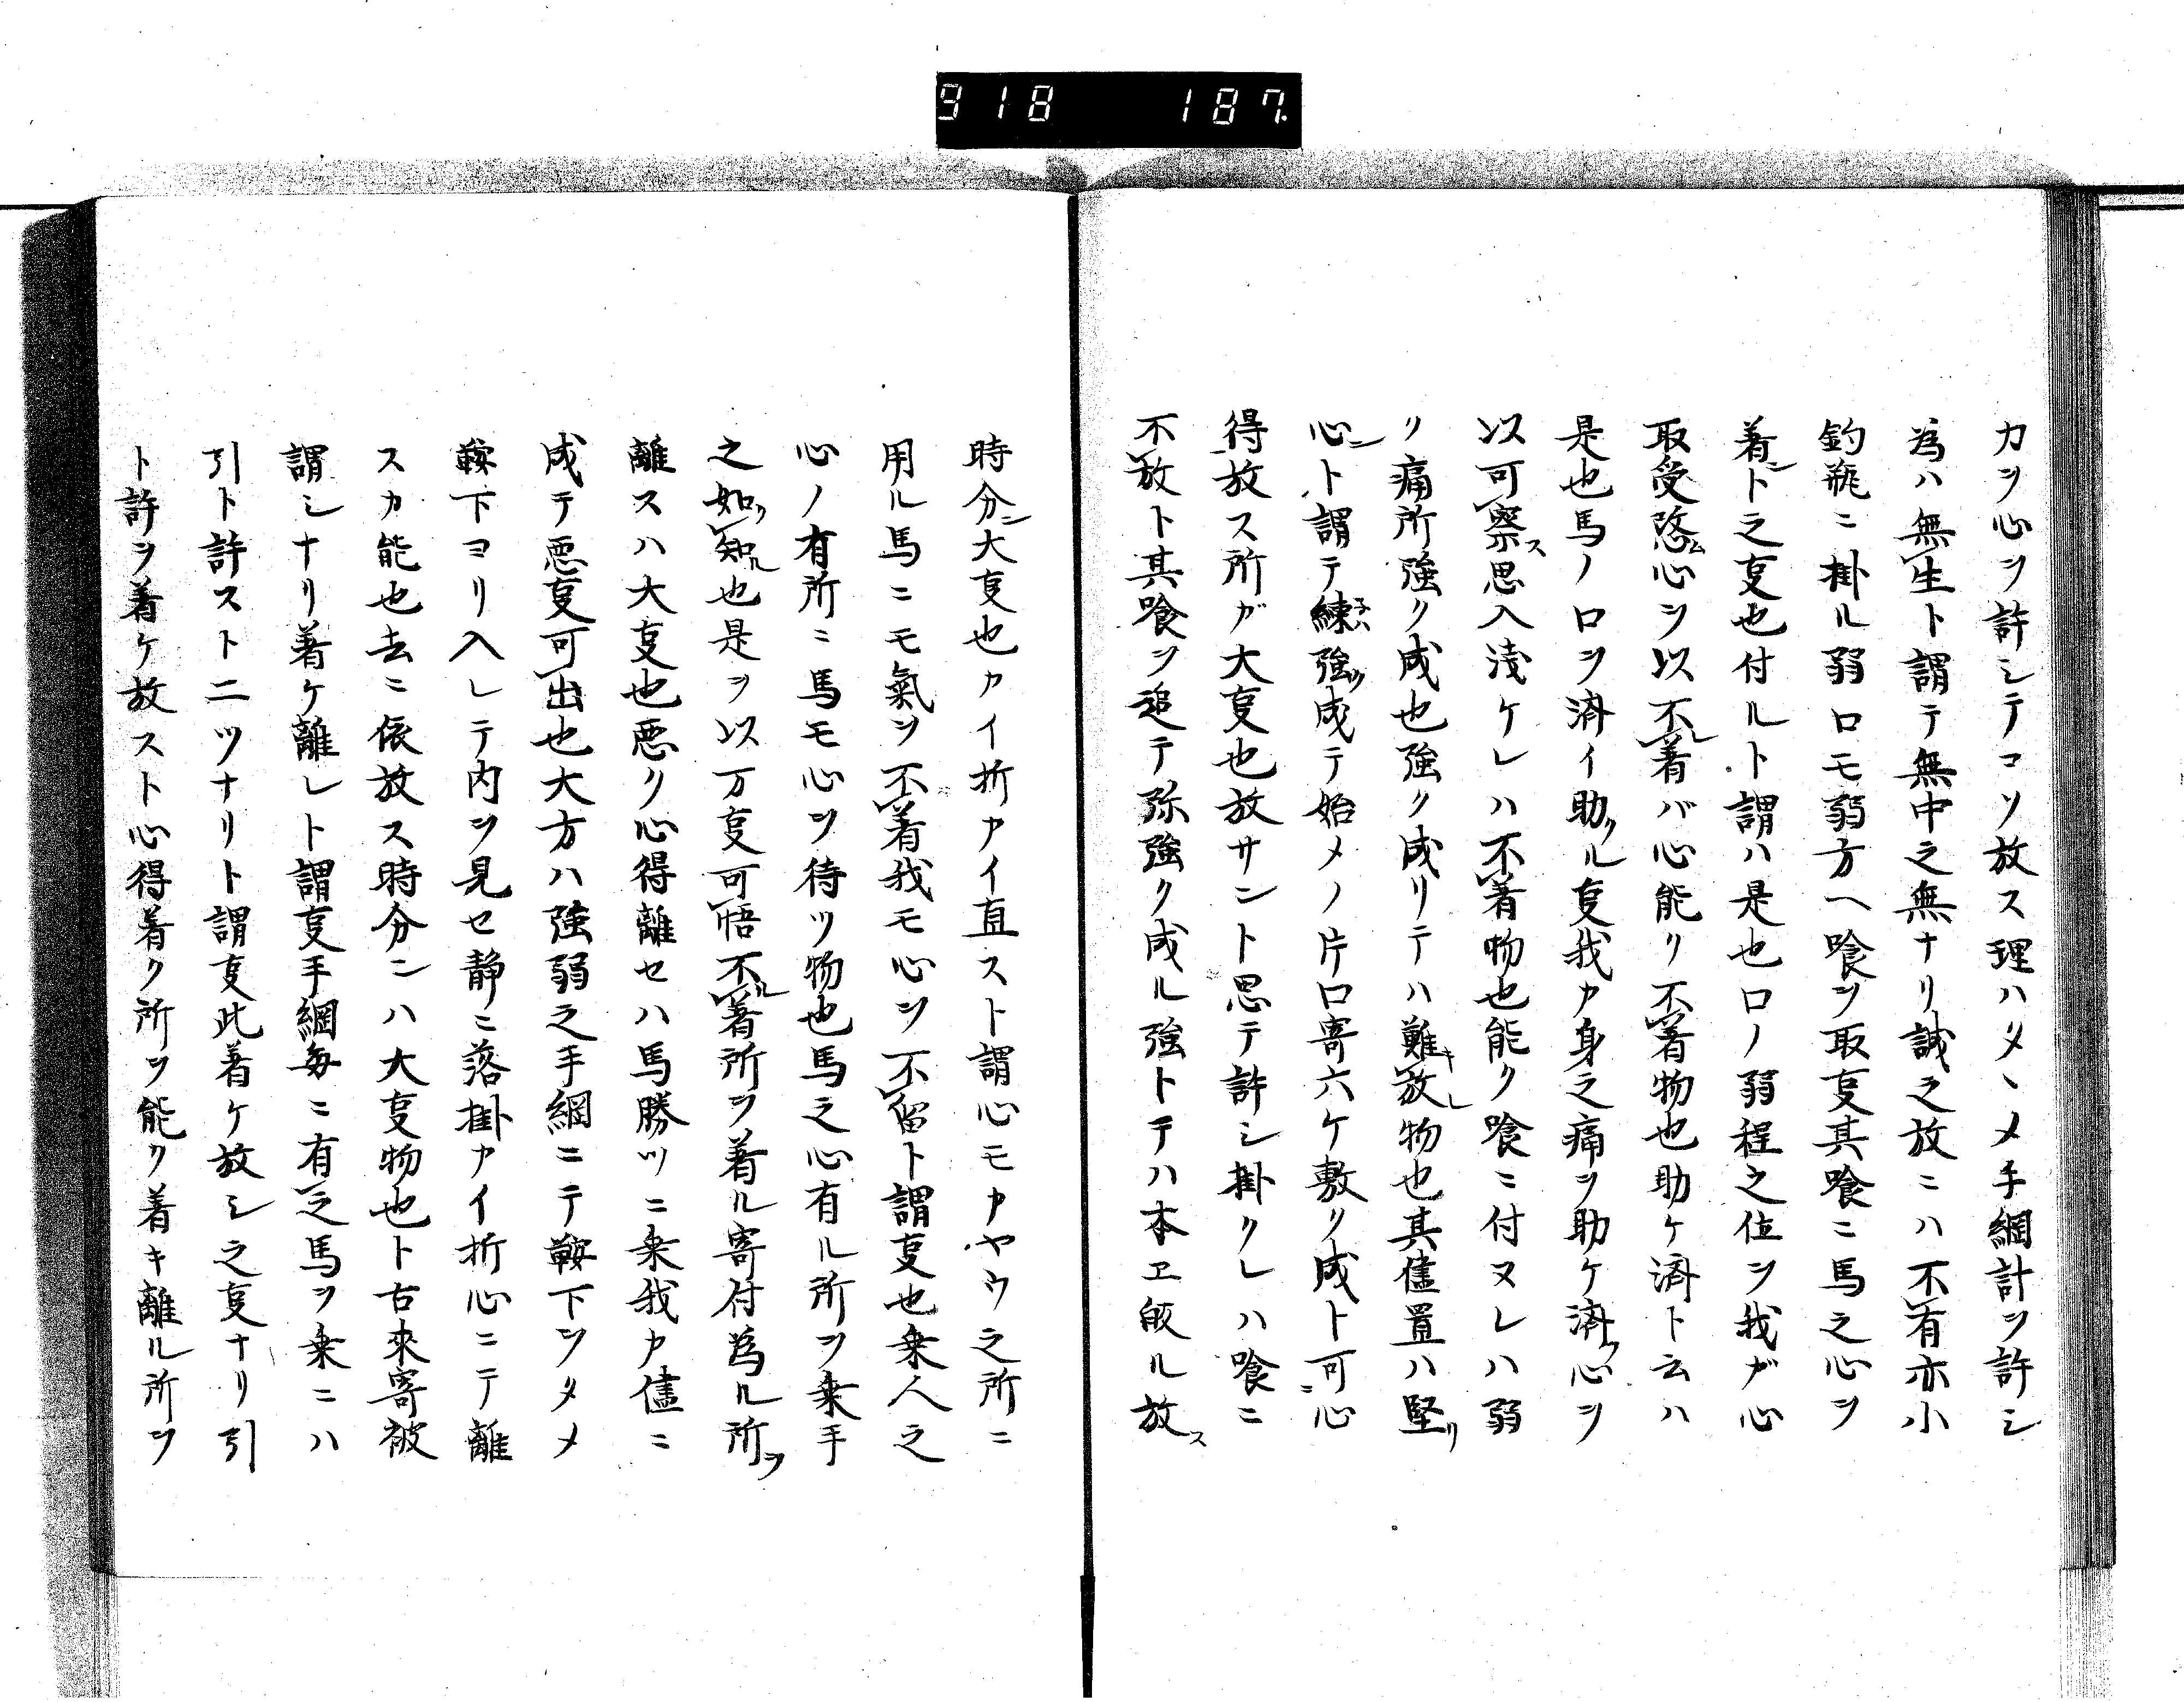 918 187.
カヲ心ヲ許シテコソ放ス理ハタヽメ手綱計ヲ許シ
為ハ無生ト謂テ無中之無ナリ誠之放ニハ不有亦小
釣瓶ニ掛ル弱口モ弱方ヘ喰ヲ取叓其喰ニ馬之心ヲ
着ント之叓也付ルト謂ハ是也口ノ弱程之位ヲ我ガ心
取受悠ム心ヲ以不レ着バ心能リ不着物也助ケ済ト云ハ
是也馬ノ口ヲ済イ助クル叓我カ身之痛ヲ助ケ済フ心ヲ
以可察ス思入浅ケレハ不着物也能ク喰ニ付ヌレハ弱
リ痛所強ク成也強ク成リテハ難キ放レ物也其儘置ハ堅リ
心ント謂テ練強成テ始メノ片口寄六ケ敷リ成ト可ニ心
得放ス所ガ大叓也放サント思テ許シ掛クレハ喰ニ
不放ト其喰ヲ追テ弥強ク成ル強トテハ本エ皈ル放ス
時分ン大叓也カイ折カイ直スト謂心モカヤウ之所ニ
用ル馬ニモ氣ヲ不着我モ心ヲ不留ト謂叓也乗人之
心ノ有所ニ馬モ心ヲ待ツ物也馬之心有ル所ヲ乗手
之如クレ知ル也是ヲ以万叓可悟不ル着所ヲ着ル寄付為ル所ヲ
離スハ大叓也悪ク心得離セハ馬勝ツニ乗我カ儘ニ
成テ悪叓可出也大方ハ強弱之手綱ニテ鞍下ヲタメ
鞍下ヨリ入レテ内ヲ見セ静ニ落掛カイ折心ニテ離
スカ能也去ニ依放ス時分ンハ大叓物也ト古來寄被
謂シナリ着ケ離レト謂叓手綱毎ニ有之馬ヲ乗ニハ
引ト許スト二ツナリト謂叓此着ケ放シ之叓ナリ引
ト許ヲ着ケ放スト心得着ク所ヲ能ク着キ離ル所ヲ